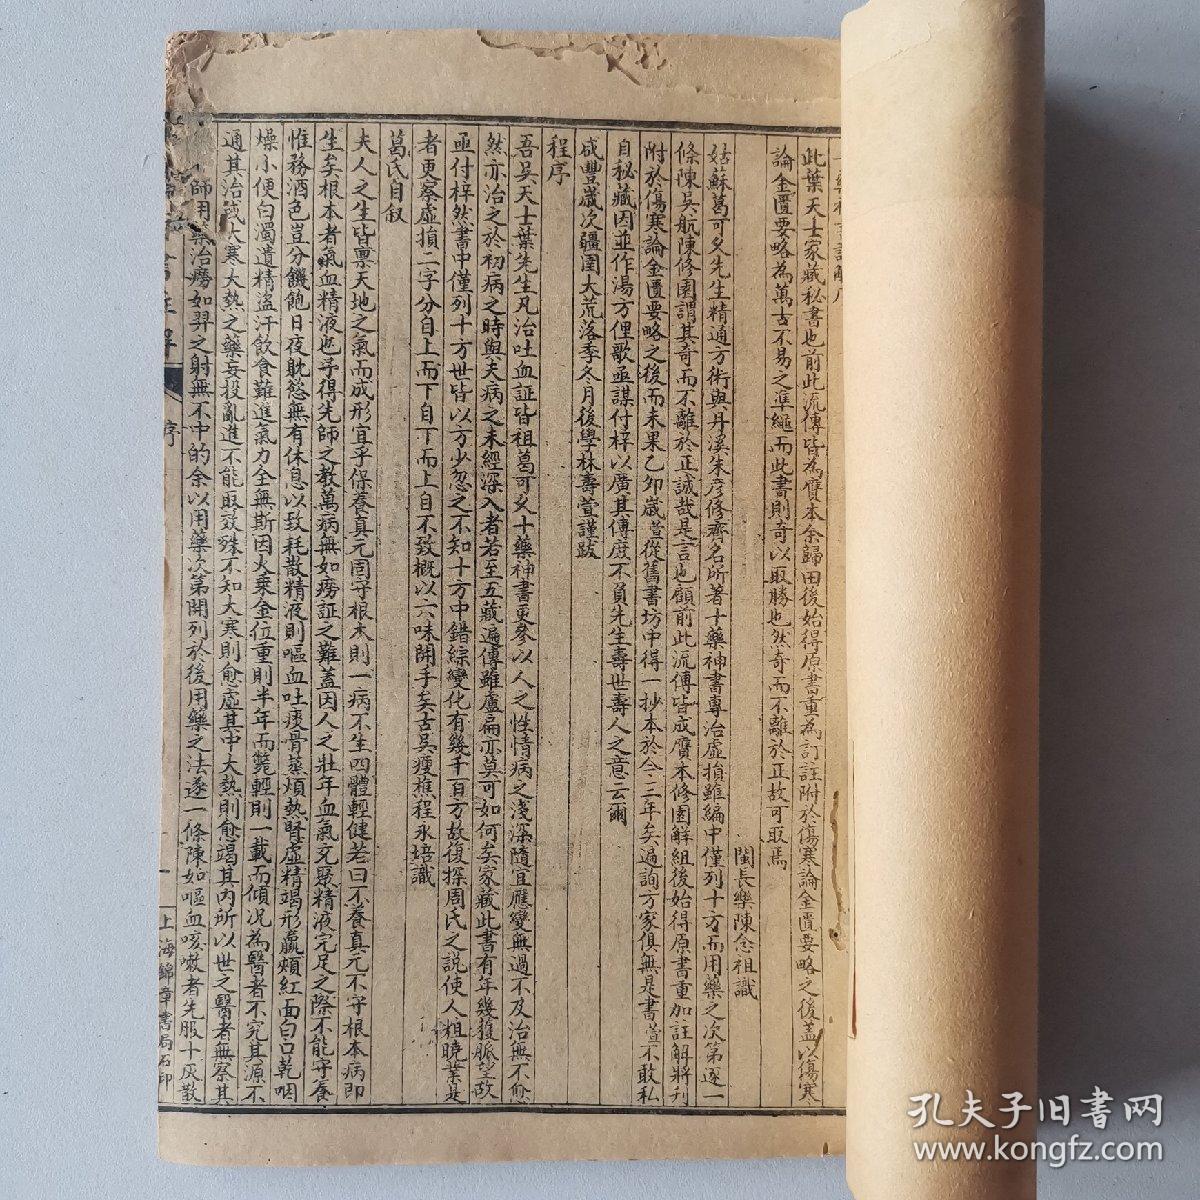 此葉天士家藏秘書也前此流傳皆為贋本余歸田後始得原書重為訂註附於傷寒論金匱要略之後蓋以傷寒
論金匱要略為萬古不易之準繩而此書則奇以取勝也然奇而不離於正故可取焉
閩長樂陳念祖識
姑蘇葛可久先生精通方術與丹溪朱彥修齊名所著十藥神書專治虛損雖編中僅列十方而用藥之次第逐一
條陳吳航陳修園謂其奇而不離於正誠哉是言也顧前此流傳皆成贋本修園解組後始得原書重加註解將刋
附於傷寒論金匱要略之後而未果乙卯歲萱從舊書坊中得一抄本於今三年矣過詢方家俱無是書萱不敢私
自秘藏因並作湯方俚歌亟謀付梓以廣其傳庶不負先生壽世壽人之意云爾
咸豐歲次疆圉大荒落季冬月後學林壽萱謹跋
程序
吾吳天士葉先生凡治吐血証皆祖葛可久十藥神書更參以人之性情病之淺深隨宜應變無過不及治無不愈
然亦治之於初病之時與夫病之未經深入者若至五藏遍傳雖盧扁亦莫可如何矣家藏此書有年幾獲脈望故
亟付梓然書中僅列十方世皆以方少忽之不知十方中錯綜變化有幾千百方故復採周氏之說使人粗曉業是
者更察虛損二字分自上而下自下而上自不致概以六味開手矣古吳瘦樵程永培識
葛氏自敘
夫人之生皆禀天地之氣而成形宜乎保養真元固守根本則一病不生四體輕健若曰不養真元不守根本病即
生矣根本者氣血精液也予得先師之教萬病無如癆証之難蓋因人之壯年血氣充聚精液完足之際不能守養
惟務酒色豈分饑飽日夜躭慾無有休息以致耗散精液則嘔血吐痰骨蒸煩熱腎虛精竭形羸頰紅面白口乾咽
燥小便白濁遺精盜汗飲食難進氣力全無斯因火乘金位重則半年而斃輕則一載而傾况為醫者不究其源不
通其治或大寒大熱之藥妄投亂進不能取效殊不知大寒則愈虛其中大熱則愈竭其內所以世之醫者無察其
師用藥治癆如羿之射無不中的余以用藥次第開列於後用藥之法逐一條陳如嘔血咳嗽者先服十灰散
註解
序
一
上海錦章書局石印
孔夫子旧书网
www.kongfz.com